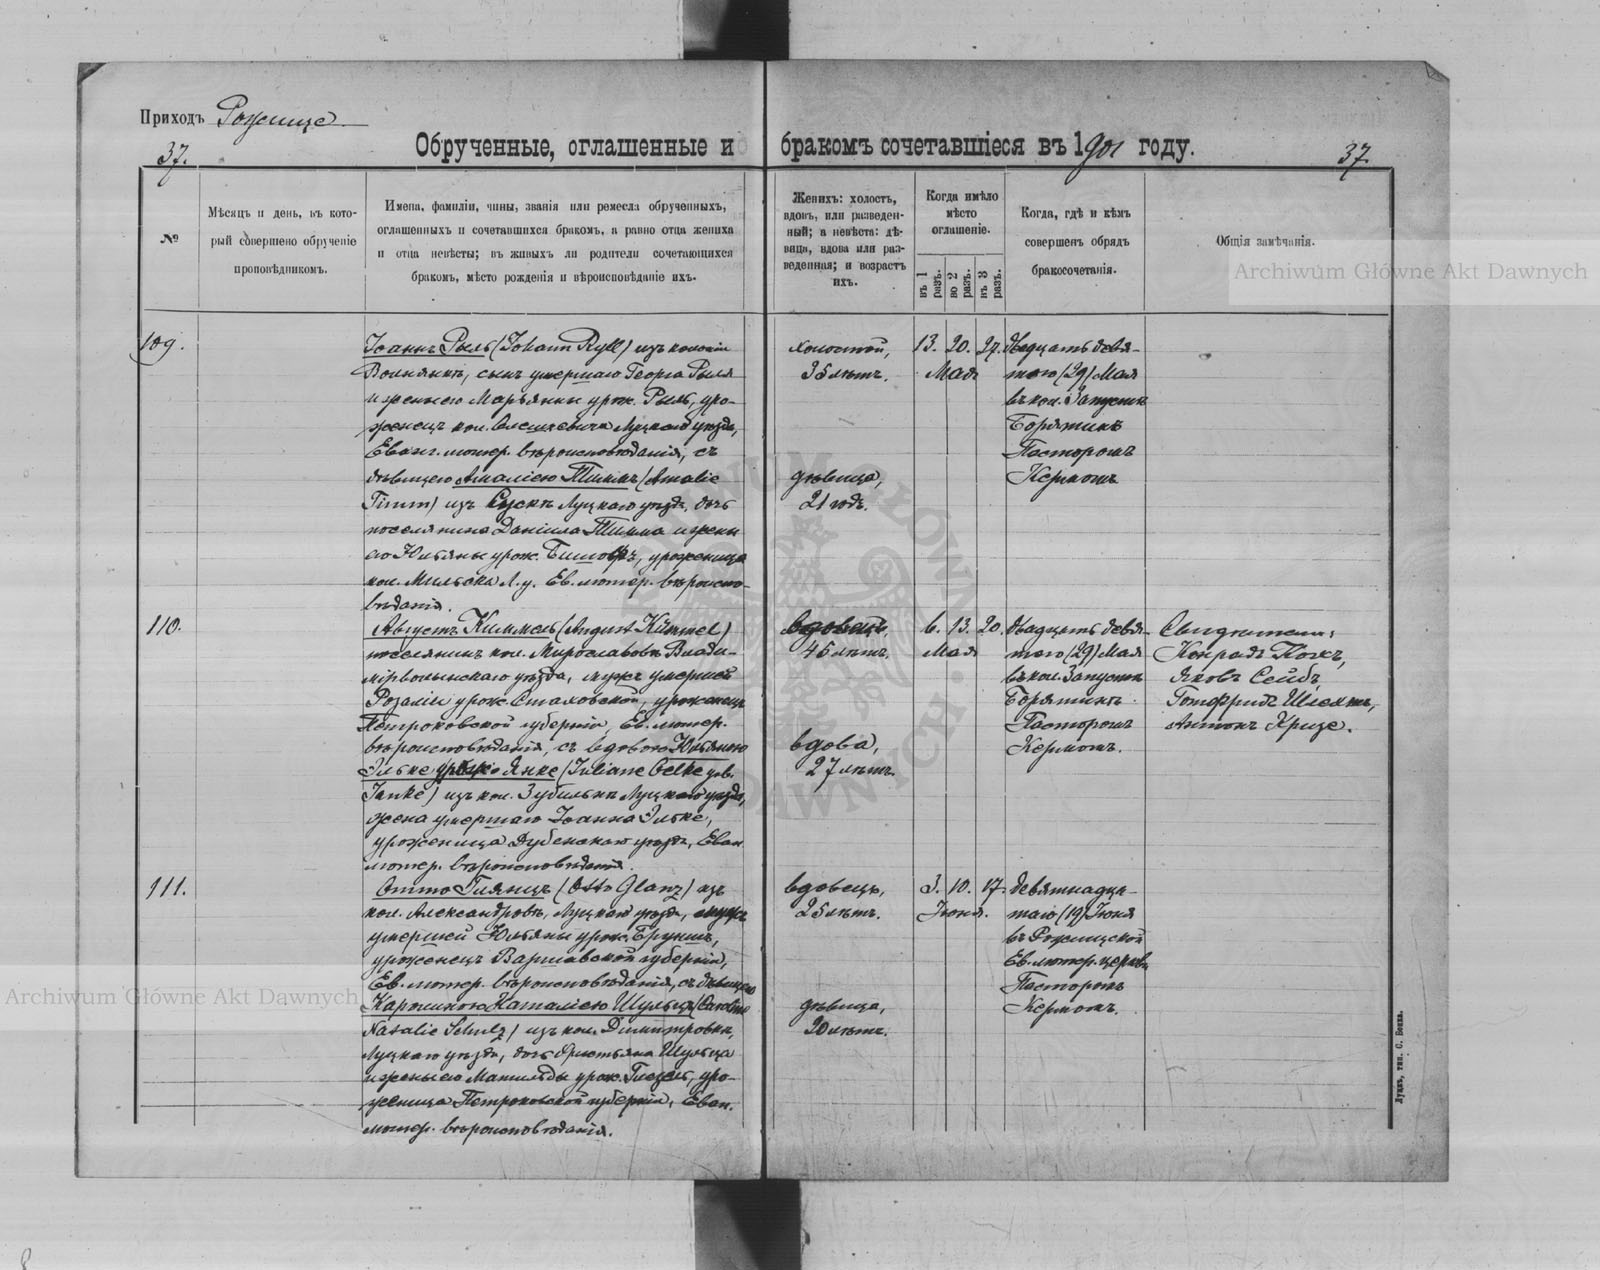 Приходъ Рожище
37.
Обрученные, оглашенные и бракомъ сочетавшіеся въ 1901 году.
37.
№
Мѣсяцъ и день, въ кото-
рый совершено обрученіе
проповѣдникомъ.
Имена, фамиліи, чины, званія или ремесла обрученныхъ,
оглашенныхъ и сочетавшихся бракомъ, а равно отца жениха
и отца невѣсты; въ живыхъ ли родители сочетающихся
бракомъ, мѣсто рожденія и вѣроисповѣданіе ихъ.
Женихъ: холостъ,
вдовъ, или разведен-
ный; а невѣста: дѣ-
вица, вдова или раз-
веденная; и возрастъ
ихъ.
Когда имѣло
мѣсто
оглашеніе.
въ 1
разъ.
во 2
разъ.
въ 3
разъ.
Когда, гдѣ и кѣмъ
совершенъ обрядъ
бракосочетанія.
Общія замѣчанія.
Archiwum Główne Akt Dawnych
109.
Іоаннъ Рыль (Johann Ryll) изъ колоніи
Волнянкѣ, сынъ умершаго Георга Рыля
и жены его Марьянны урож. Рыль, уро-
женецъ кол. Олешкевичи Луцкаго уѣзда,
Еванг. лютер. вѣроисповѣданія, съ
дѣвицею Амаліею Тиммъ (Amalie
Timm) изъ Луцкаго уѣзда, дочь
поселянина Даніила Тимма и жены
его Юльяны урож. уроженица
кол. Мильска Л. у. Ев. лютер. вѣроиспо-
вѣданія.
холостой,
35 лѣтъ.
дѣвица,
21 годъ.
13. 20. 27.
Мая
двадцать девя-
того (29) Мая
въ кол. Запустъ
Борятинъ
Пасторомъ
Кермомъ
110.
Августъ Киммель (August Kümmel)
поселянинъ кол. Мирославовкѣ Влади-
мірволынскаго уѣзда, мужъ умершей
Розаліи урож. Стаховской, уроженецъ
Петроковской губерніи, Ев. лютер.
вѣроисповѣданія, съ вдовою Юльяною
Эльке урож. Янке (Juliane Oelke geb.
Janke) изъ кол. Зубильнѣ Луцкаго уѣзда,
жена умершаго Іоанна Эльке,
уроженица Дубенскаго уѣзда, Еван.
лютер. вѣроисповѣданія.
вдовецъ,
45 лѣтъ.
вдова,
27 лѣтъ.
6. 13. 20.
Мая
двадцать девя-
того (29) Мая
въ кол. Запустъ
Борятинъ
Пасторомъ
Кермомъ.
Свидѣтели:
Конрадъ
Яковъ Сейбъ,
Готфридъ
Антонъ Кризе.
111.
Отто Глянцъ (Otto Glanz) изъ
кол. Александровкѣ, Луцкаго уѣзда, мужъ
умершей Юльяны урож.
уроженецъ Варшавской губерніи,
Ев. лютер. вѣроисповѣданія, съ дѣвицею
Каролиною Наталіею Шульцъ (Caroline
Natalie Schulz) изъ кол. Димитровкѣ,
Луцкаго уѣзда, дочь Христьяна Шульца
и жены его Матильды урож. уро-
женица Петроковской губерніи, Еван.
лютер. вѣроисповѣданія.
вдовецъ,
25 лѣтъ.
дѣвица,
20 лѣтъ.
3. 10. 17.
Іюня.
девятнадца-
таго (19) Іюня
въ Рожищской
Ев. лютер. церкви
Пасторомъ
Кермомъ.
Archiwum Główne Akt Dawnych
Луцкъ, тип. С. Бокка.